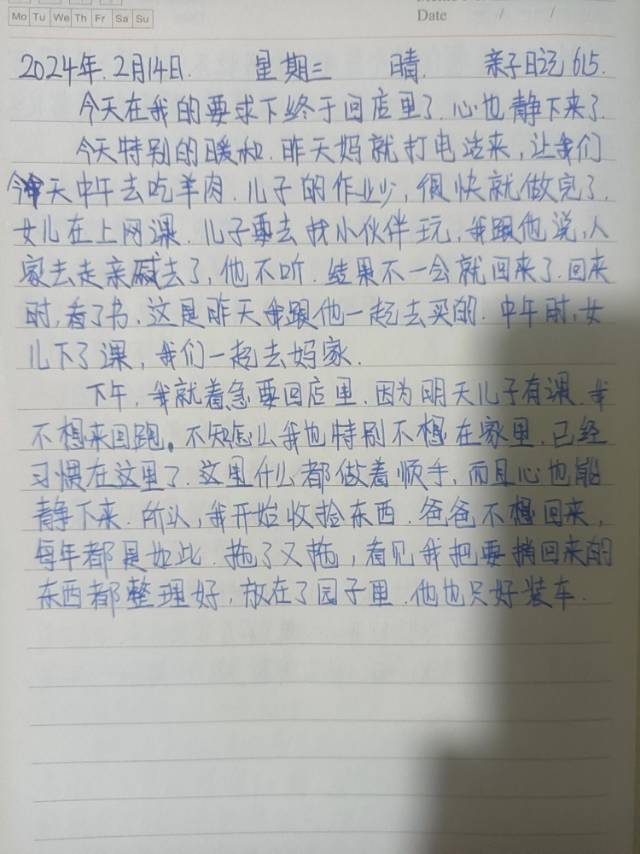 Mo Tu We Th Fr Sa Su
Date / /
2024年.2月14日. 星期三 晴. 亲子日记615.
今天在我的要求下终于回店里了.心也静下来了.
今天特别的暖和.昨天妈就打电话来,让我们
今天中午去吃羊肉.儿子的作业少,很快就做完了.
女儿在上网课.儿子要去找小伙伴玩,我跟他说,人
家去走亲戚去了,他不听.结果不一会就回来了.回来
时,看了书.这是昨天我跟他一起去买的.中午时,女
儿下了课,我们一起去妈家.
下午,我就着急要回店里.因为明天儿子有课.我
不想来回跑。不知怎么我也特别不想在家里.已经
习惯在这里了.这里什么都做着顺手,而且心也能
静下来.所以,我开始收捡东西.爸爸不想回来,
每年都是如此.拖了又拖,看见我把要捎回来的
东西都整理好,放在了园子里.他也只好装车.